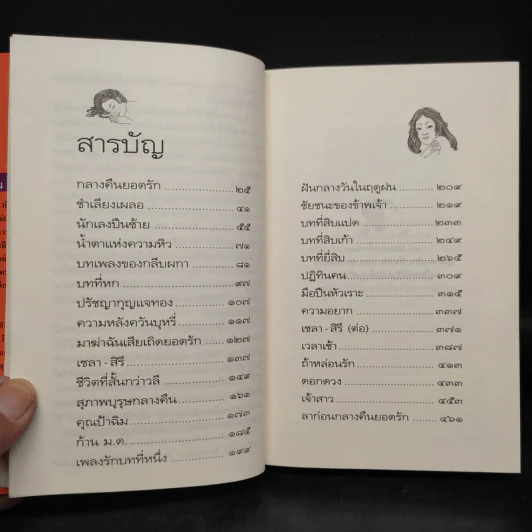 สารบัญ
กลางคืนยอดรัก ๒๕
ชำเลียงเผลอ ๔๑
นักเลงปืนซ้าย ๕๕
น้ำตาแห่งความหิว ๗๑
บทเพลงของกลีบผกา ๘๑
บทที่หก ๙๗
ปรัชญากุญแจทอง ๑๐๗
ความหลังควันบุหรี่ ๑๑๗
มาฆ่าฉันเสียเถิดยอดรัก ๑๒๗
เชลา - สิรี ๑๓๗
ชีวิตที่สั้นกว่าวลี ๑๔๙
สุภาพบุรุษกลางคืน ๑๖๑
คุณป้าฉิม ๑๗๓
ก้าน ม.ค. ๑๘๕
เพลงรักบทที่หนึ่ง ๑๙๙
ฝันกลางวันในฤดูฝน ๒๐๙
ชัยชนะของข้าพเจ้า ๒๑๙
บทที่สิบแปด ๒๓๓
บทที่สิบเก้า ๒๔๙
บทที่ยี่สิบ ๒๖๕
ปฏิทินคน ๓๐๙
มือปืนหัวเราะ ๓๑๕
ความอยาก ๓๓๗
เชลา - สิรี (ต่อ) ๓๗๑
เวลาเช้า ๓๘๗
ถ้าหล่อนรัก ๔๑๓
ตอกดวง ๔๓๓
เจ้าสาว ๔๕๓
ลาก่อนกลางคืนยอดรัก ๔๖๑